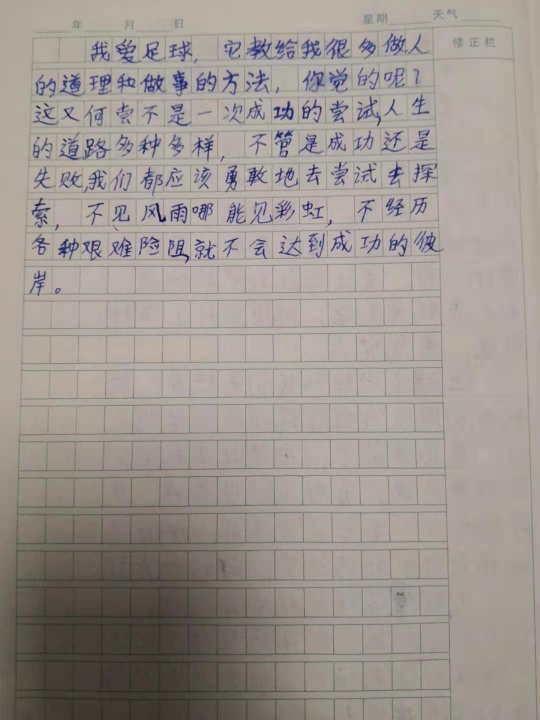 年 月 日 星期 天气
修正栏
我爱足球，它教给我很多做人
的道理和做事的方法，你觉的呢？
这又何尝不是一次成功的尝试，人生
的道路多种多样，不管是成功还是
失败，我们都应该勇敢地去尝试去探
索，不见风雨哪能见彩虹，不经历
各种艰难险阻，就不会达到成功的彼
岸。